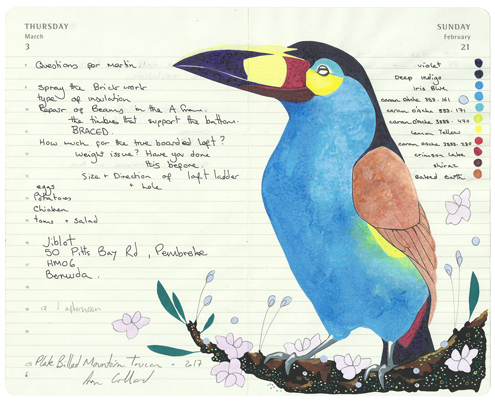 THURSDAY
March
3
Questions for Martin.
Spray the Brick work
type of insulation
Repair of Beams in the A frame.
the timbres that support the bottom.
BRACED.
How much for the true boarded loft?
Weight issue? Have you done
this before.
Size + Direction of loft ladder
+ hole
eggs
Potatoes
Chicken
toms + salad
Jiblot
50 Pitts Bay Rd, Pembroke
HM06
Bermuda.
afternoon
Plate Billed Mountain Toucan - 2017
SUNDAY
February
21
violet
Deep indigo
iris Blue
caran d'ache
caran d'ache
caran d'ache
Lemon Yellow
caran d'ache
crimson Lake
shiraz
baked earth